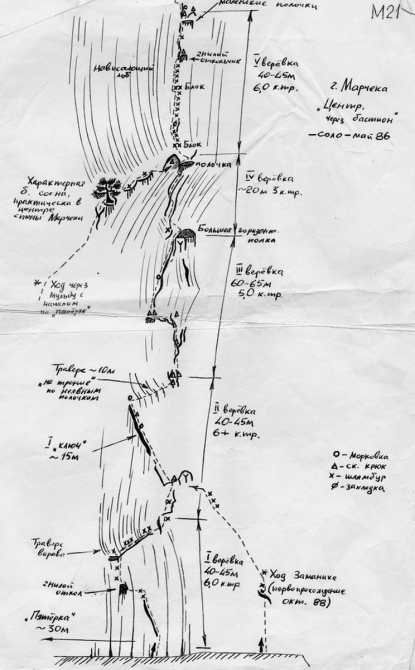 маленькие полочки
М21
Нависающий
лоб
гнилой
откольчик
V верёвка
40-45м
6,0 к.тр.
г. Марчека
"Центр.
через бастион"
— соло — май 86
Блок
Блок
полочка
Характерная
б. сосна,
практически в
центре
стены Марчеки
IV верёвка
~20м 3 к.тр.
Большая горизонт.
полка
* Ход через
мульду с
началом
по "пятёрке"
III верёвка
60-65м
5,0 к.тр.
Траверс ~10м
"на трение"
по неявным
полочкам
II верёвка
40-45м
6+ к.тр.
I "ключ"
~15м
о - морковка
∆ - ск. крюк
x - шлямбур
ø - закладка
Траверс
влево
гнилой
откол
I верёвка
40-45м
6,0 к.тр
* Ход Заманихе
(первопрохождение
окт. 88)
"Пятёрка"
~ 30м